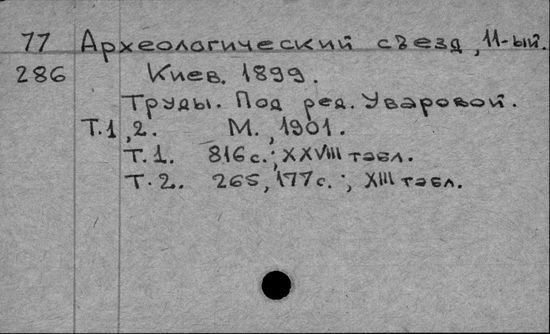 77 Археологический съезд, 11-ый.
286 Киев. 1899.
Труды. Под ред. Уваровой.
Т.1,2. М., 1901.
Т.1. 816с.; XXVIII табл.
Т.2. 265, 177с.; XIII табл.